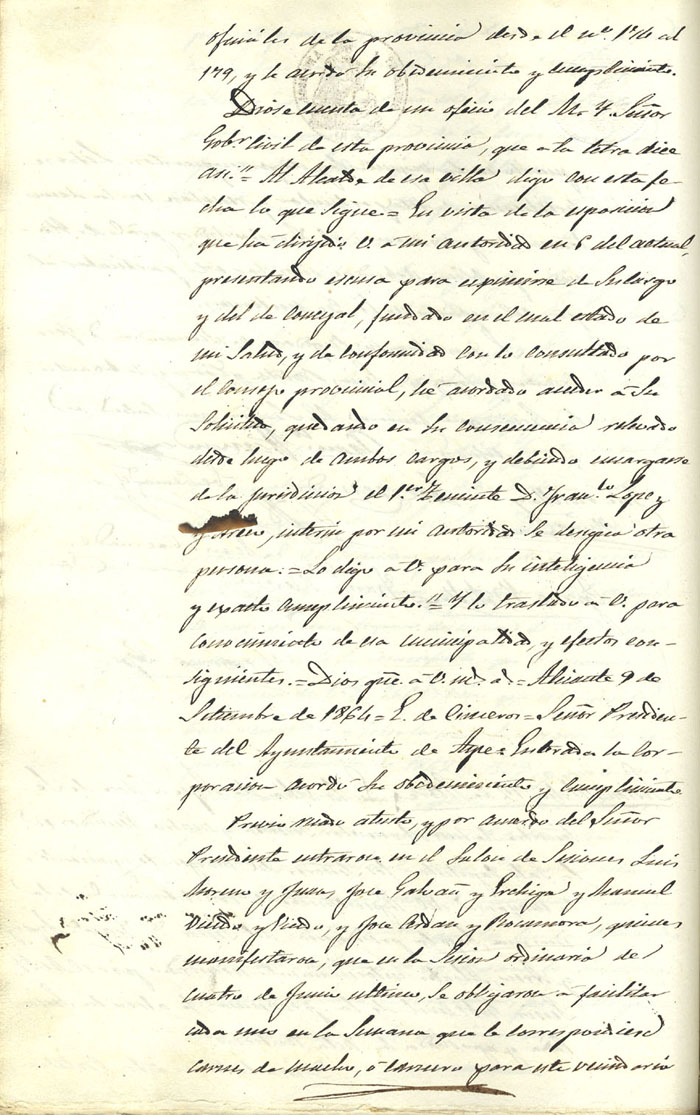 oficiales de la provincia desde el nº. 176 al
179, y se acordó su obedecimiento y cumplimiento.
Diose cuenta de un oficio del M. Y. Señor
Gobr. Civil de esta provincia, que a la letra dice
asi:"= Al Alcalde de esa villa digo con esta fe-
cha lo que sigue= En vista de la esposicion
que ha dirijido V. a mi autoridad en 6 del actual,
presentando escusa para eximirse de su cargo
y del de concejal, fundado en el mal estado de
mi Salud, y de conformidad con lo consultado por
el consejo provincial, hé acordado acceder á su
Solicitud, quedando en su consecuencia relevado
desde luego de ambos cargos, y debiendo encargarse
de la jurisdiccion el 1.er Teniente D. Fran.co Lopez
y, interin por mi autoridad se designa otra
persona.=Lo digo a V. para su inteligencia
y exacto cumplimiento."= Y lo traslado á V. para
conocimiento de esa municipalidad, y efectos con-
siguientes.=Dios gue. a V. m. a.= Alicante 9 de
Setiembre de 1864= E. de Cisneros= Señor Presiden-
te del Ayuntamiento de Aspe= Enterada la Cor-
poracion acordó su obedecimiento y cumplimiento
Previo recado atento, y por acuerdo del Señor
Presidente entraron en el Salon de Sesiones Luis
Moreno y Juan, Jose Galvañ y Erchiga y Manuel
Vicedo y Vicedo, y Jose Cerdan y Rocamora, quienes
manifestaron, que en la Sesion ordinaria de
cuatro de Junio ultimo, se obligaron a facilitar
cada uno en la Semana que le correspondiese
carnes de macho, ó carnero para este vecindario